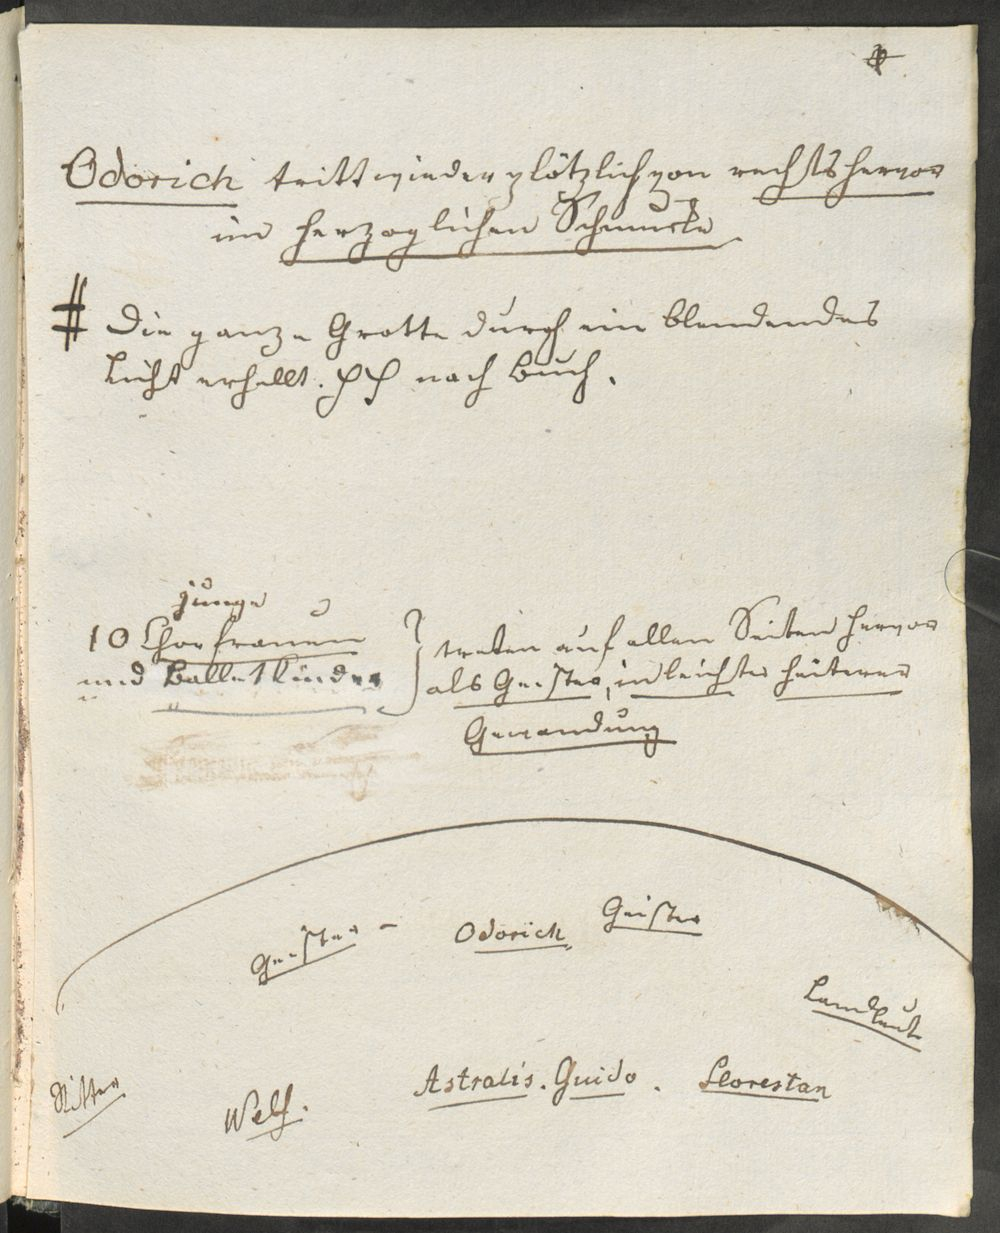 Odorich tritt wieder plötzlich von rechts hervor
im herzoglichen Schmucke
# Die ganze Grotte durch ein blendendes
Licht erhellt. pp nach Buch.
junge
10 Chorfrauen
und Balletkinder
treten auf allen Seiten hervor
als Geister, in leichter heiterer
Gewandung
Geister – Odorich Geister
Landleute
Ritter Welf. Astralis. Guido. Florestan